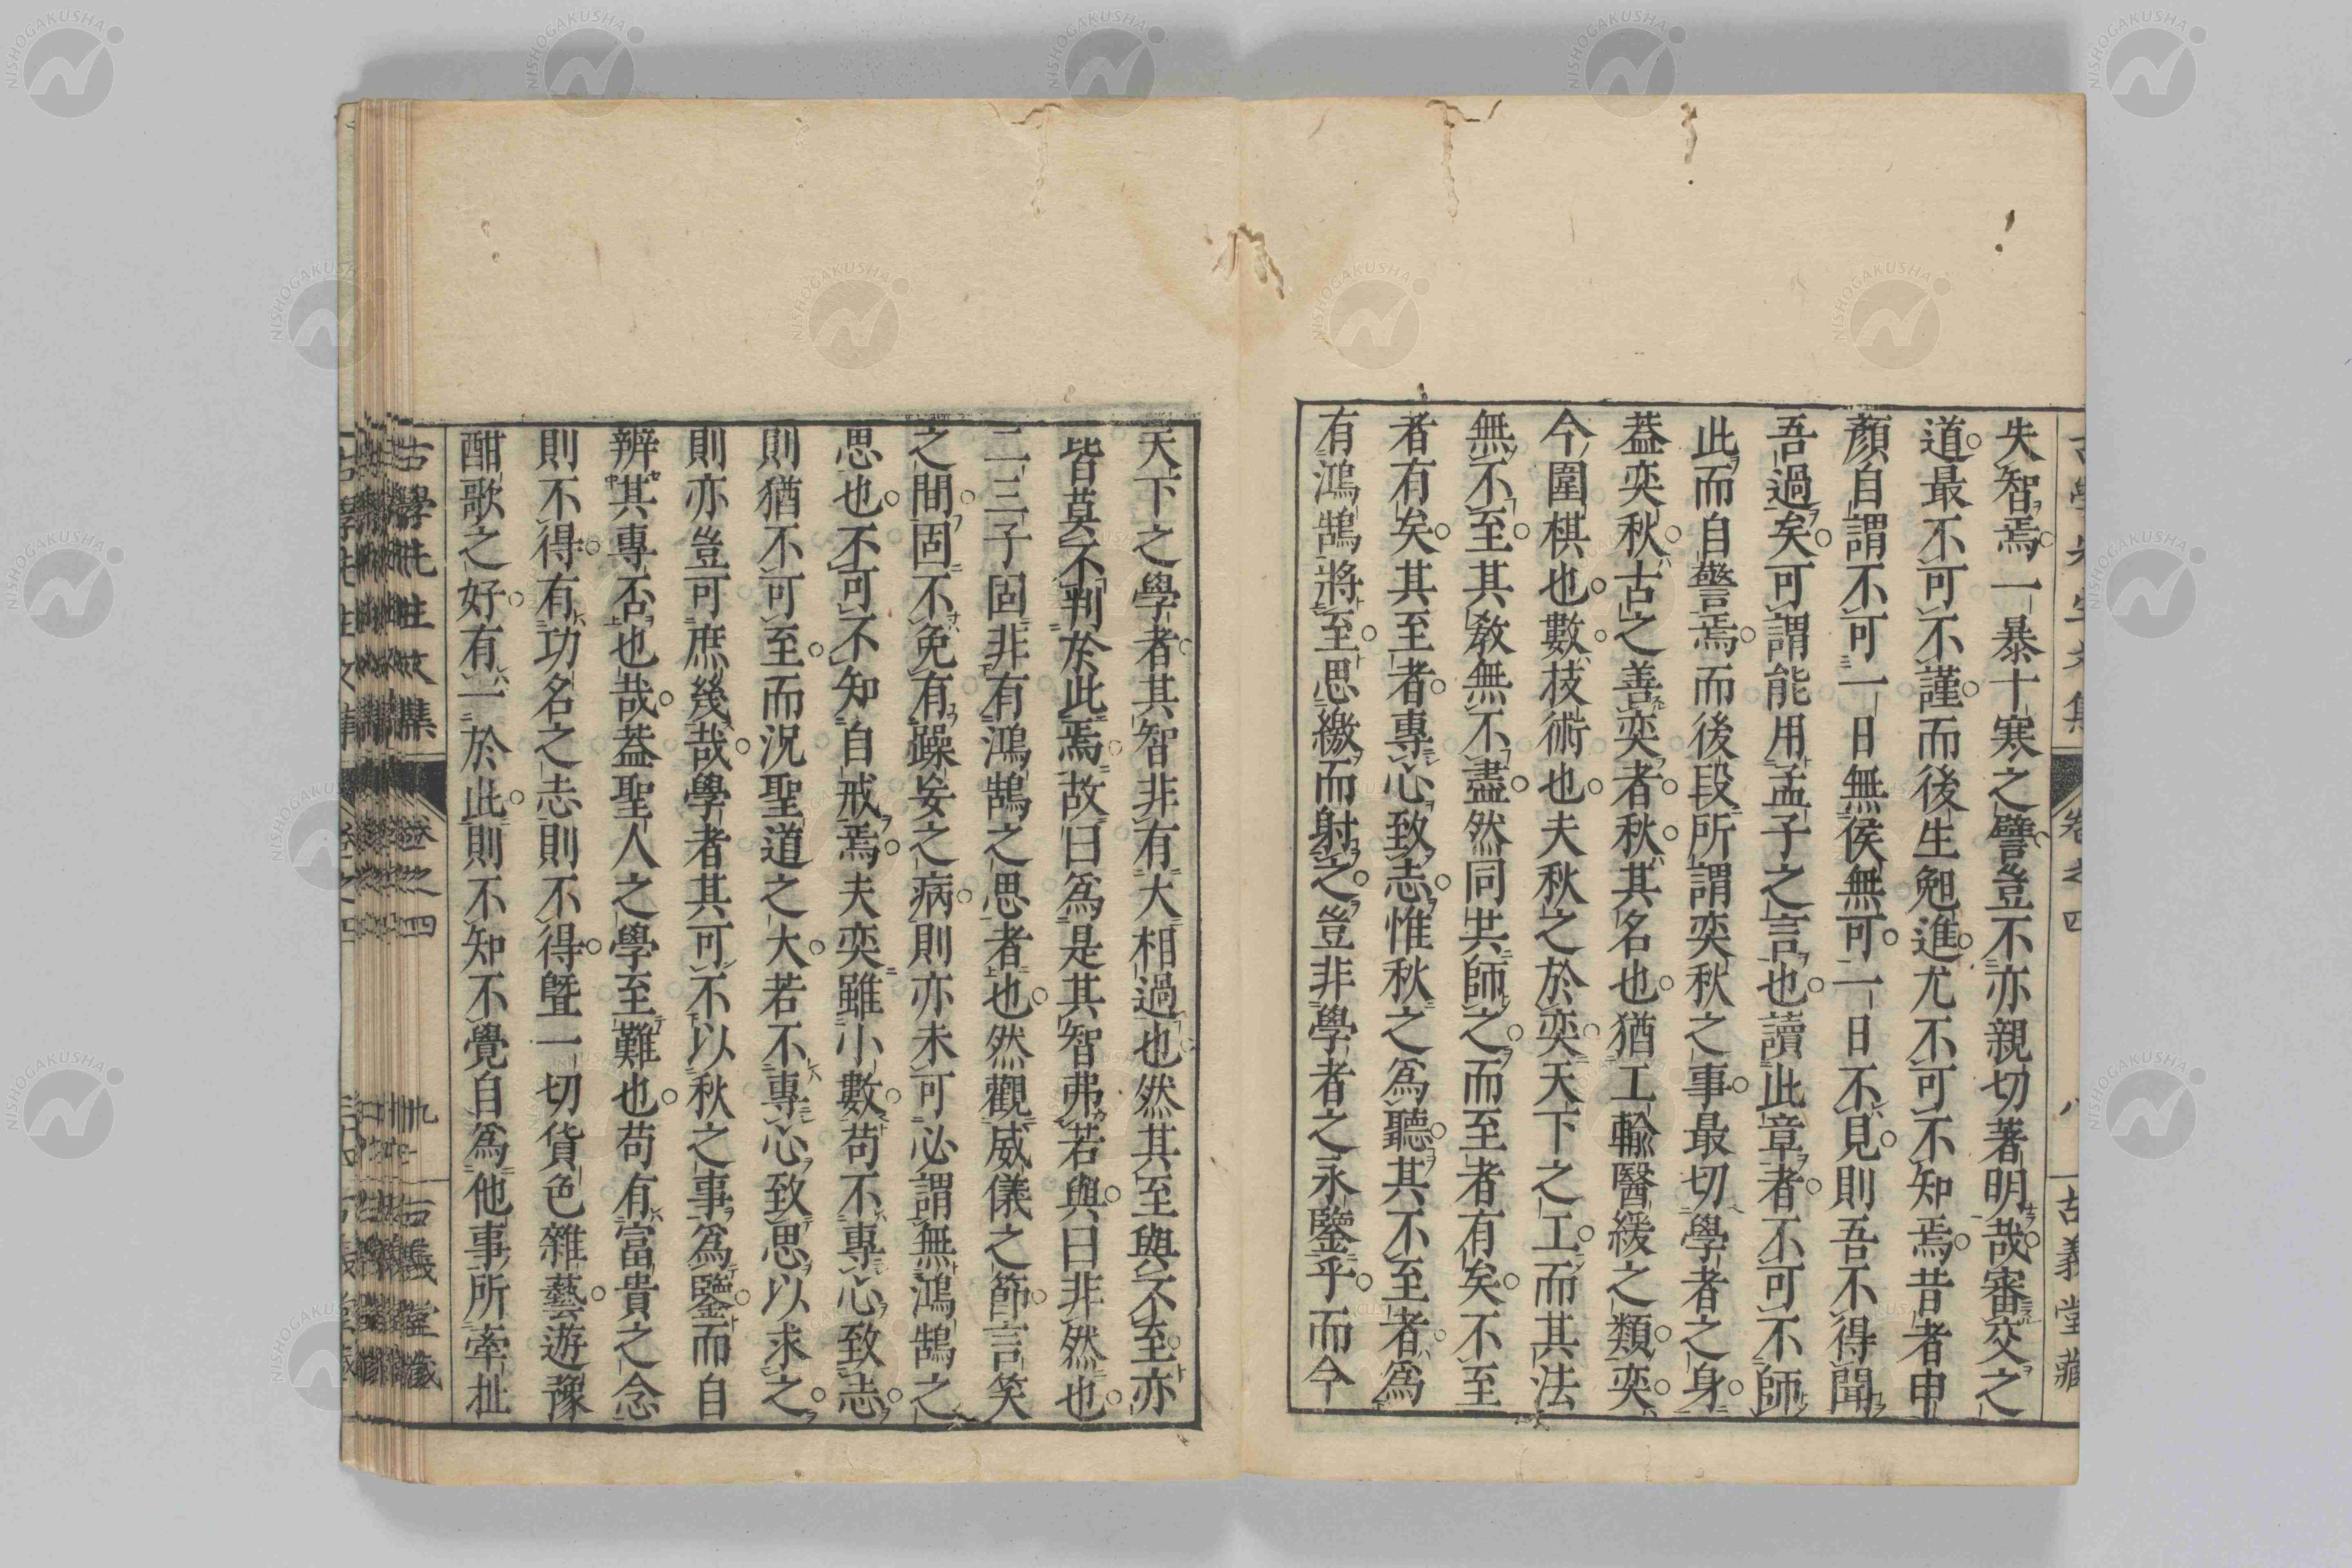 失智焉一暴十寒之譬豈不亦親切著明哉審交之
道最不可不謹而後生勉進尤不可不知焉昔者申
顏自謂不可一日無侯無可一日不見則吾不得聞
吾過矣可謂能用孟子之言也讀此章者不可不師
此而自警焉而後段所謂奕秋之事最切學者之身
葢奕秋古之善奕者秋其名也猶工輸醫緩之類奕
今圍棋也數技術也夫秋之於奕天下之工而其法
無不至其教無不盡然同其師之而至者有矣不至
者有矣其至者專心致志惟秋之爲聽其不至者爲
有鴻鵠將至思繳而射之豈非學者之永鑒乎而今
卷之四
八
古義堂藏
天下之學者其智非有大相過也然其至與不至亦
皆莫不判於此焉故曰爲是其智弗若與曰非然也
二三子固非有鴻鵠之思者也然觀威儀之節言笑
之間固不免有躁妄之病則亦未可必謂無鴻鵠之
思也不可不知自戒焉夫奕雖小數苟不專心致志
則猶不可至而況聖道之大若不專心致思以求之
則亦豈可庶幾哉學者其可不以秋之事爲鑒而自
辨其專否也哉葢聖人之學至難也苟有富貴之念
則不得有功名之志則不得曁一切貨色雜藝遊豫
酣歌之好有一於此則不知不覺自爲他事所牽扯
古學先生文集
卷之四
九
古義堂藏
NISHOGAKUSHA